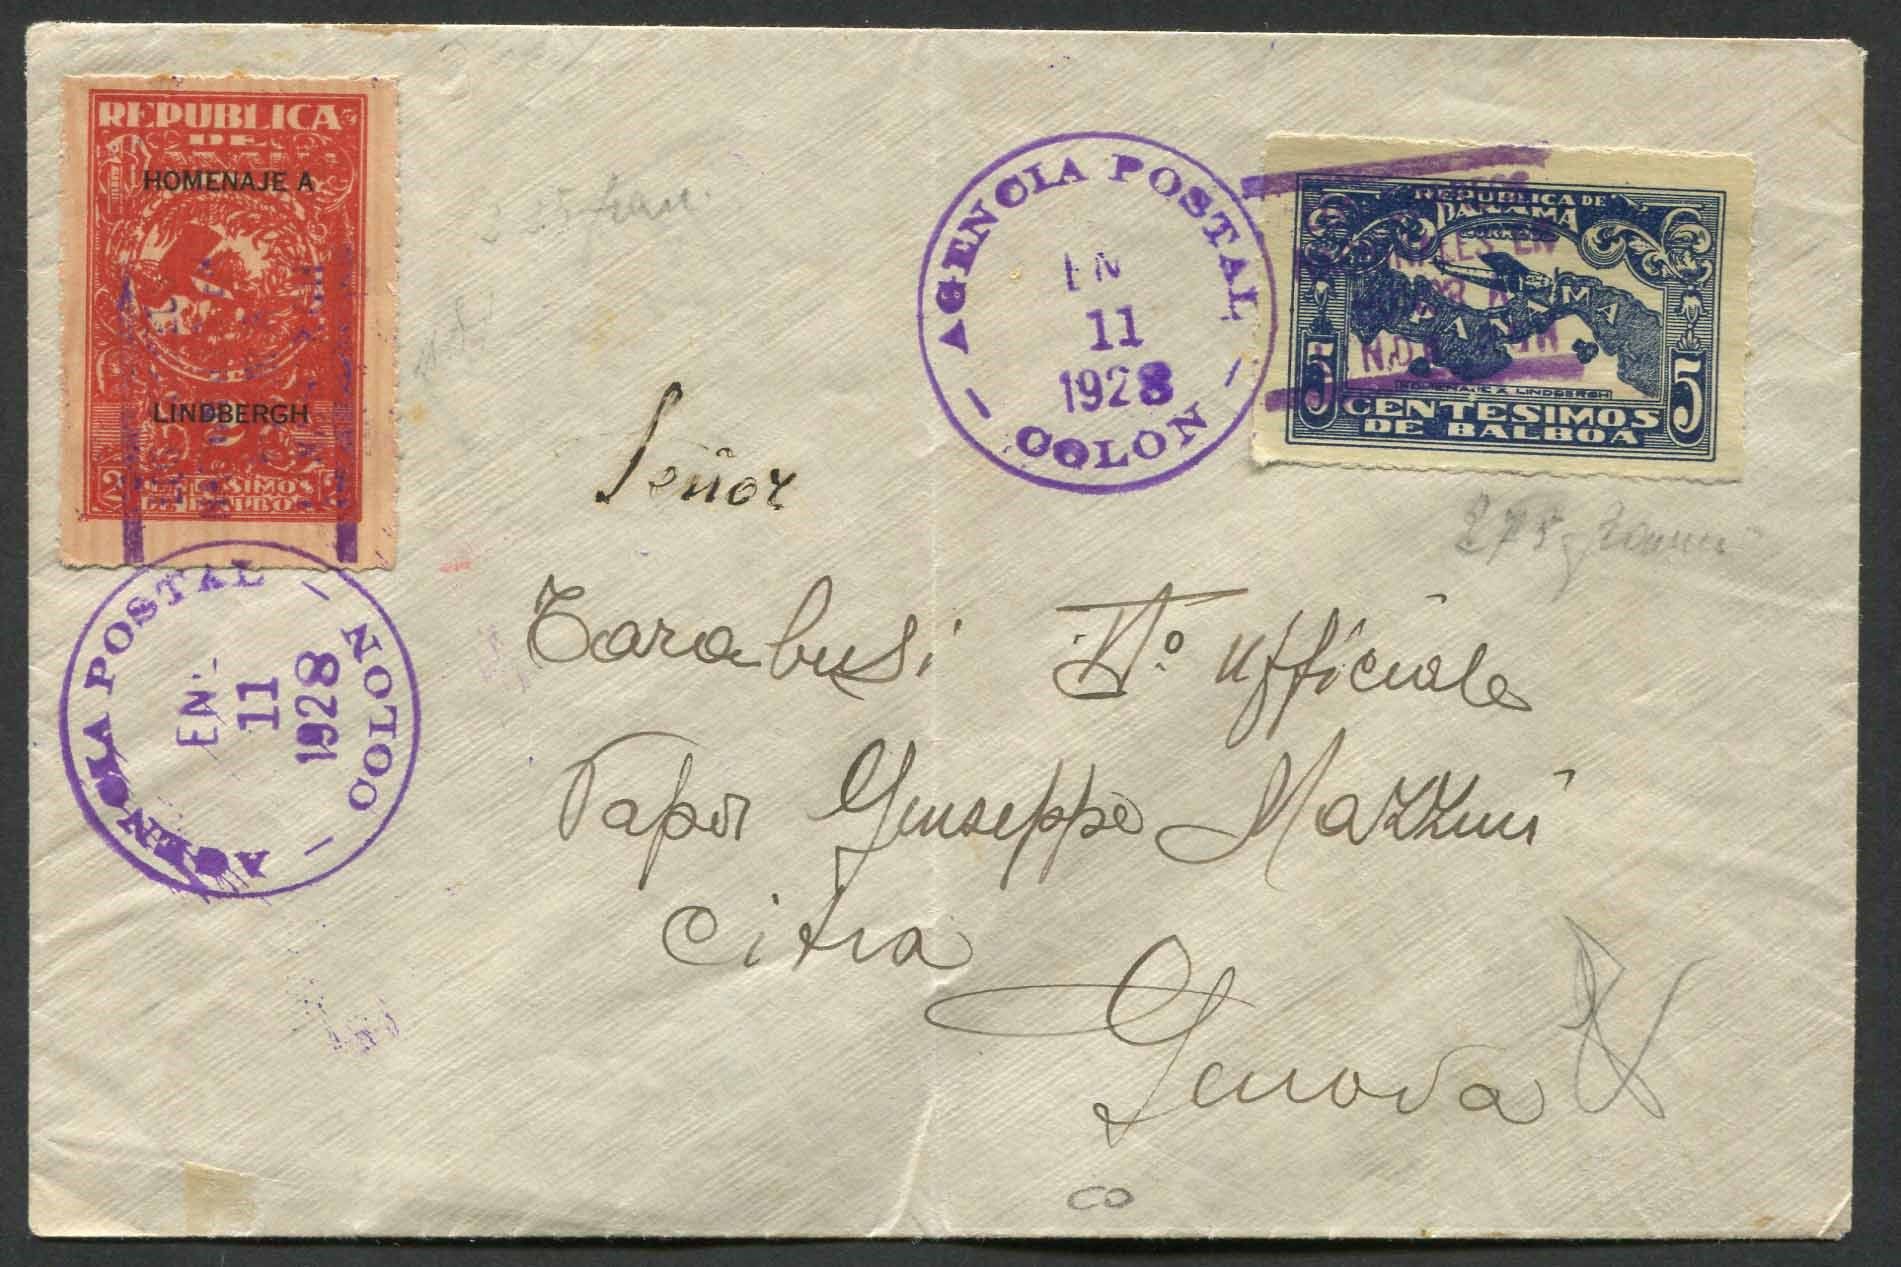 REPUBLICA
DE
HOMENAJE A
LINDBERGH
2 CENTESIMOS 2
DE BALBOA
AGENCIA POSTAL
EN
11
1928
- COLON -
REPUBLICA DE
PANAMA
CORREOS
PANAMA
HOMENAJE A LINDBERGH
5 CENTESIMOS 5
DE BALBOA
Señor
Tarabusi IIº ufficiale
Vapor Giuseppe Mazzini
Citra
Genova
AGENCIA POSTAL
EN
11
1928
- COLON -
CO